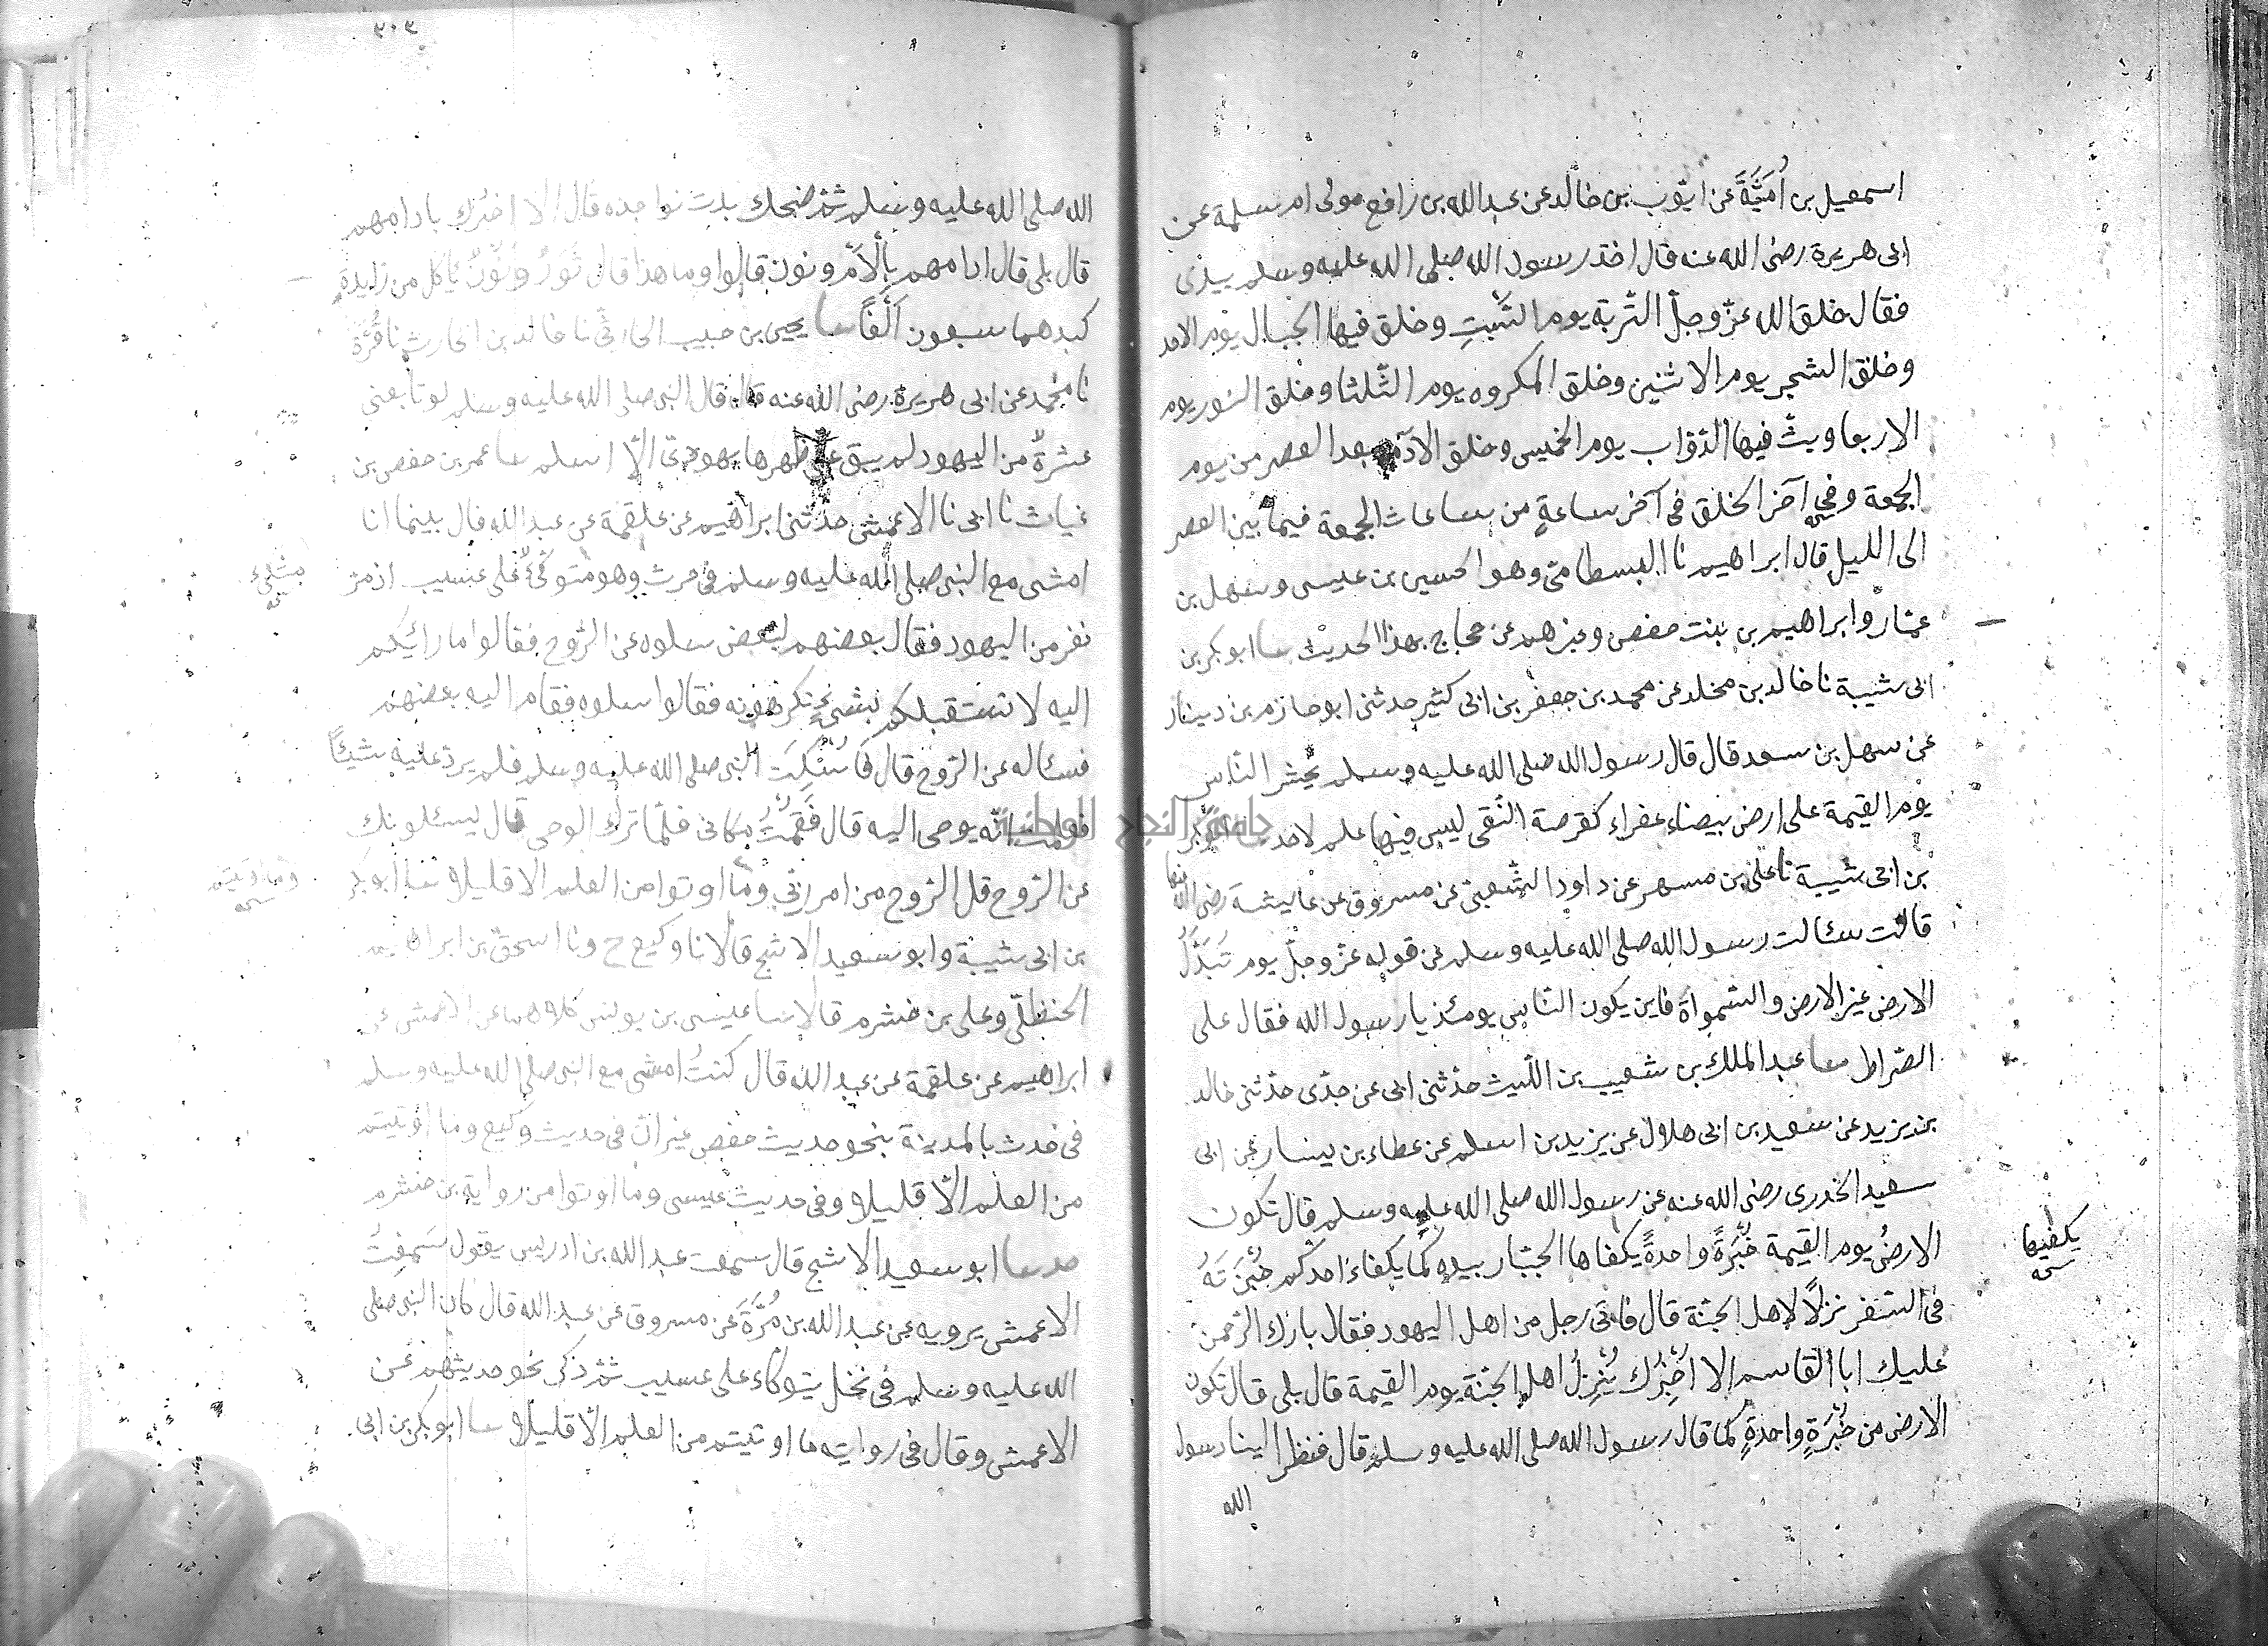 اسمعيل بن اُمَيَّةَ عن ايوب بن خالد عن عبد الله بن رافع مولى ام سلمة عن
ابى هريرة رضى الله عنه قال اخذ رسول الله صلى الله عليه وسلم بيدى
فقال خلق الله عزّ وجلّ التربة يوم السَّبتِ وخلق فيها الجبال يوم الاحد
وخلق الشجر يوم الاثنين وخلق المكروه يوم الثّلثا وخلق النور يوم
الاربعا وبثّ فيها الدّوّاب يوم الخميس وخلق الآدم بعد العصر من يوم
الجمعة وفى آخر الخلق فى آخر ساعةٍ من ساعات الجمعة فيما بين العصر
الى الليل قال ابراهيم نا البسطامى وهو الحسين بن عيسى وسهل بن
عمّار وابراهيم بن بنت حفص وغيرهم عن حجاج بهذا الحديث سا ابو بكر بن
ابى شيبة نا خالد بن مخلد عن محمد بن جعفر بن ابى كثير حدثنى ابو حازم بن دينار
عن سهل بن سعد قال قال رسول الله صلى الله عليه وسلم يحشر الناس
يوم القيمة على ارض بيضاء عفراء كقرصة النّقى ليس فيها علم لاحد سا ابو بكر
جامعة النجاح الوطنية
بن ابى شيبة نا على بن مسهر عن داود الشّعبىّ عن مسروق عن عايشة رضى الله عنها
قالت سئالت رسول الله صلى الله عليه وسلم عن قوله عزّ وجلّ يوم تُبَدَّلُ
الارض غير الارض والسّمواة فاين يكون الناس يومئذ يا رسول الله فقال على
الصّراط سا عبد الملك بن شعيب بن اللّيث حدّثنى ابى عن جدّى حدّثنى خالد
بن يزيد عن سعيد بن ابى هلال عن يزيد بن اسلم عن عطاء بن يسار عن ابى
سعيد الخدرى رضى الله عنه عن رسول الله صلى الله عليه وسلم قال تكون
الارضُ يوم القيمة خُبْزَةً واحدةً يكفاها الجبّار بيده كما يكفاء احدكم خُبْزَتَهُ
يكفيها
فى السّفر نزلاً لاهل الجنّة قال فاتى رجل من اهل اليهود فقال بارك الرّحمن
عليك ابا القاسم الا اُخْبِرُك بُنْزِلُ اهل الجنّة يوم القيمة قال بلى قال تكون
الارض من خُبْزَةٍ واحدةٍ كما قال رسول الله صلى الله عليه وسلم قال فنظر الينا رسول
الله
٣٠٣
الله صلى الله عليه وسلم ثمّ ضحك بدت نواجده قال الا اخبرك بادامهم
قال بلى قال ادامهم بألآم ونون قالوا وما هذا قال ثَوْرٌ ونُونٌ يأكل من زايدة
كبدهما سبعون اَلْفًا سا يحيى بن حبيب الحارثىّ نا خالد بن الحارث نا قُرَّة
نا محمد عن ابى هريرة رضى الله عنه قال قال النبى صلى الله عليه وسلم لو تابعنى
عشرةٌ من اليهود لم يبق على ظهرها يهودىّ الّا اسلم سا عمر بن حفص بن
غياث نا ابى نا الاعمش حدثنى ابراهيم عن علقمة عن عبد الله قال بينما انا
امشى مع النبى صلى الله عليه وسلم فى حرث وهو متوكّئٌ على عسيب اذ مرّ
نفر من اليهود فقال بعضهم لبعض سلوه عن الرّوح فقالوا ما رائيكم
اليه لا تستقبلكم بشئٍ تكرهونه فقالوا سلوه فقام اليه بعضهم
فسئاله عن الرّوح قال فَاَسْكَتَ النبى صلى الله عليه وسلم فلم يردّ عليه شيئاً
فعلمت انّه يوحى اليه قال فَقُمْتُ مكانى فلمّا ترك الوحى قال يسئلونك
عن الرّوح قل الرّوح من امر ربّى وما اوتوا من العلم الا قليلا سا ابو بكر
وما اوتيتم
بن ابى شيبة وابو سعيد الاشج قالا نا وكيع ح ونا اسحق بن ابراهيم
الحنظلىّ وعلى بن خشرم قالا سا عيسى بن يونس كلاهما عن الاعمش عن
ابراهيم عن علقمة عن عبد الله قال كنتُ امشى مع النبى صلى الله عليه وسلم
فى حدث بالمدينة بنحو حديث حفص غير انّ فى حديث وكيع وما اوتيتم
من العلم الّا قليلا وفى حديث عيسى وما اوتوا من رواية بن خشرم
سا ابو سعيد الاشج قال سمعت عبد الله بن ادريس يقول سَمِعْتُ
الاعمش يرويه عن عبد الله بن مُرَّةَ عن مسروق عن عبد الله قال كان النبى صلى
الله عليه وسلم فى نخل يتوكاء على عسيب ثمّ ذكر نحو حديثهم عن
الاعمش وقال فى روايته ما اوتيتم من العلم الّا قليلا سا ابو بكر بن ابى